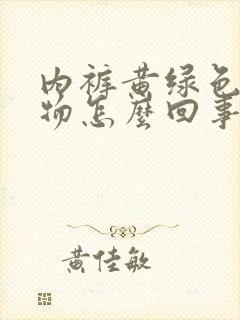 内裤黄绿色
物怎麼回事
黄佳敏